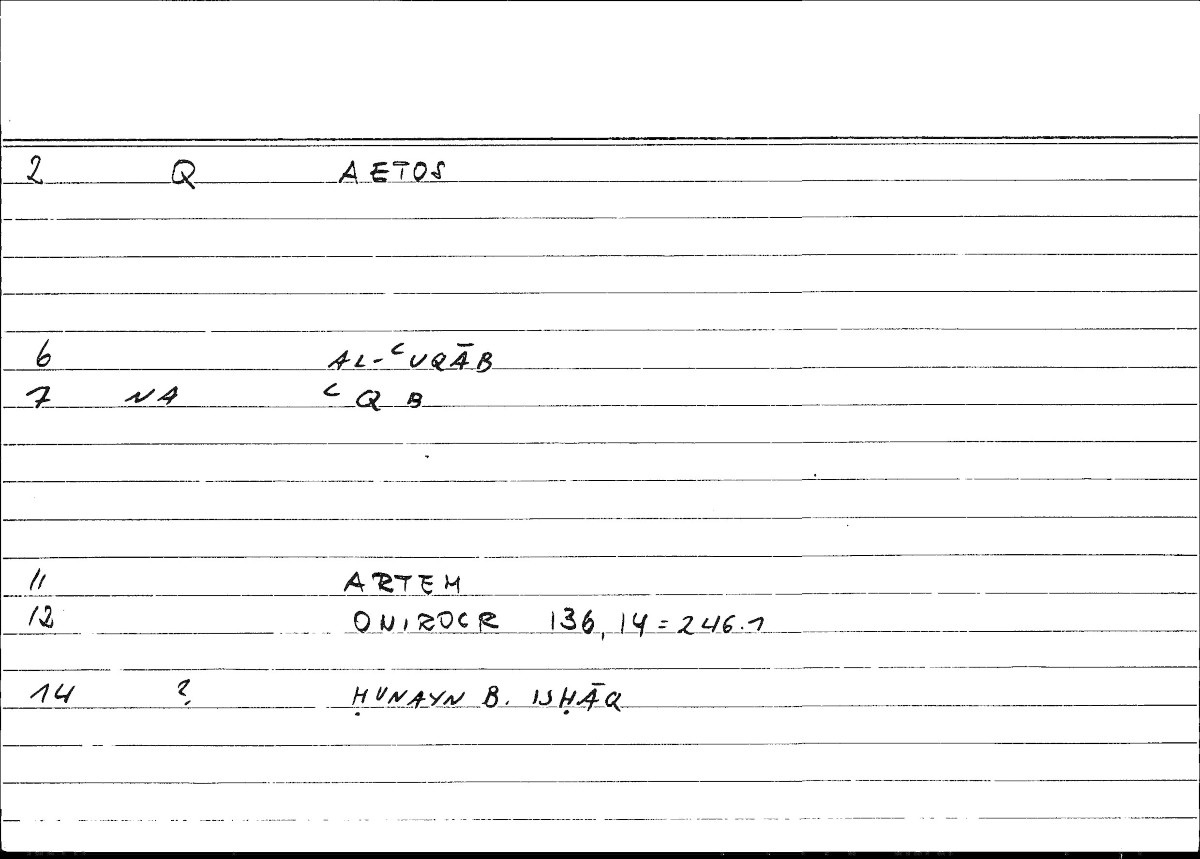 2 Q AETOS
6 AL-ʿUQĀB
7 NA ʿQB
11 ARTEM
12 ONIROCR 136,14=246.1
14 ? ḤUNAYN B. ISḤĀQ